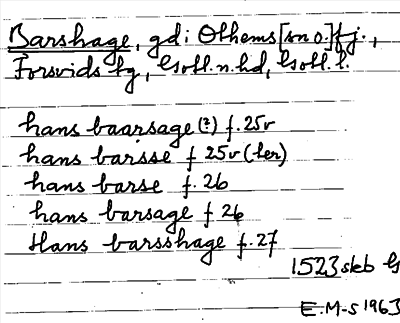 Barshage, gd i Othems [sn o.] fg.,
Forsvids fg, Gotl. n. hd, Gotl. l.
hans baarsage (?) f. 25v
hans barsse f 25v (ter)
hans barse f. 26
hans barsage f 26
Hans barsshage f. 27
1523 skb G
E.M-S 1963